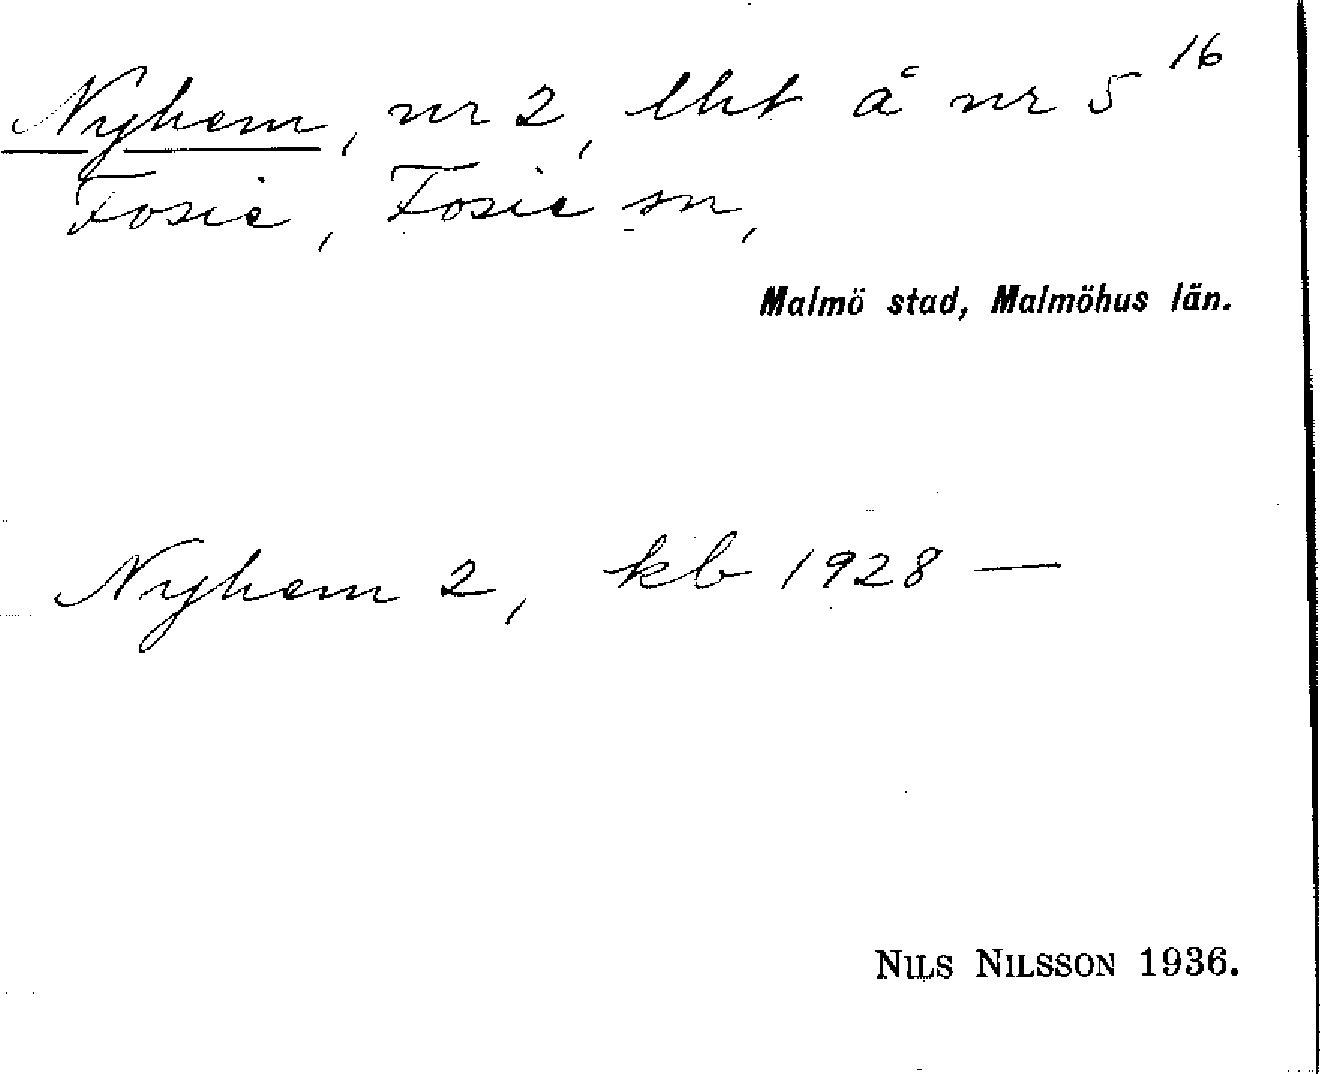 Nyhem, nr 2, lht å nr 5¹⁶
Fosie, Fosie sn,
Malmö stad, Malmöhus län.
Nyhem 2, kb 1928 —
NILS NILSSON 1936.